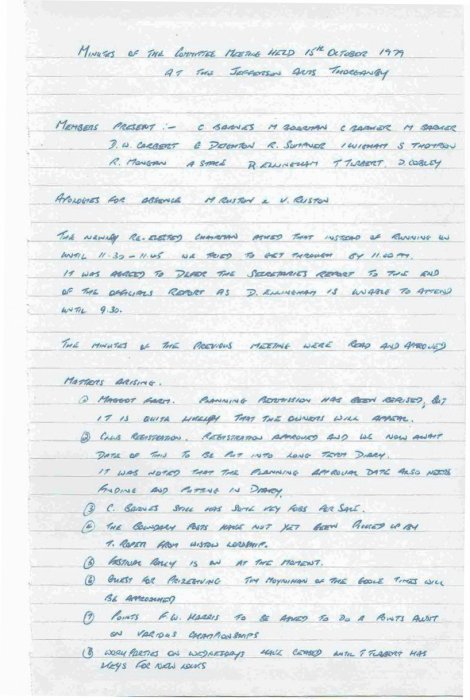 MINUTES OF THE COMMITTEE MEETING HELD 15TH OCTOBER 1979
AT THE JEFFERSON ARMS THORGANBY
MEMBERS PRESENT :- C BARNES M BOARMAN C BARKER M BARKER
D. W. CORBERT B DEIGHTON R. SUMNER I WIGHAM S THOMPSON
R. MONGAN A STARK D. ELLINGHAM T TURBERT D. COBLEY
APOLOGIES FOR ABSENCE M RUSTON & V. RUSTON
THE NEWLY RE-ELECTED CHAIRMAN ASKED THAT INSTEAD OF RUNNING ON
UNTIL 11.30 - 11.45 WE TRIED TO GET THROUGH BY 11.00 PM.
IT WAS AGREED TO DEFER THE SECRETARIES REPORT TO THE END
OF THE OFFICIALS REPORT AS D. ELLINGHAM IS UNABLE TO ATTEND
UNTIL 9.30.
THE MINUTES OF THE PREVIOUS MEETING WERE READ AND APPROVED
MATTERS ARISING.
① MAGGOT FARM. PLANNING PERMISSION HAS BEEN REFUSED, BUT
IT IS QUITE LIKELY THAT THE OWNERS WILL APPEAL.
② CLUB REGISTRATION. REGISTRATION APPROVED AND WE NOW AWAIT
DATE OF THIS TO BE PUT INTO LONG TERM DIARY.
IT WAS NOTED THAT THE PLANNING APPROVAL DATE ALSO NEEDS
FINDING AND PUTTING IN DIARY.
③ C. BARNES STILL HAS SOME KEY FOBS FOR SALE.
④ THE BOUNDARY POSTS HAVE NOT YET BEEN PICKED UP BY
T. ROPER FROM WISTOW LORDSHIP.
⑤ FESTIVAL RALLY IS ON AT THE MOMENT.
⑥ GUEST FOR PRIZEGIVING TIM MOYNIHAN OF THE GOOLE TIMES WILL
BE APPROACHED
⑦ POINTS F. W. HARRIS TO BE ASKED TO DO A POINTS AUDIT
ON VARIOUS CHAMPIONSHIPS
⑧ WORK PARTIES ON WEDNESDAYS HAVE CEASED UNTIL T TURBERT HAS
KEYS FOR NEW LOCKS